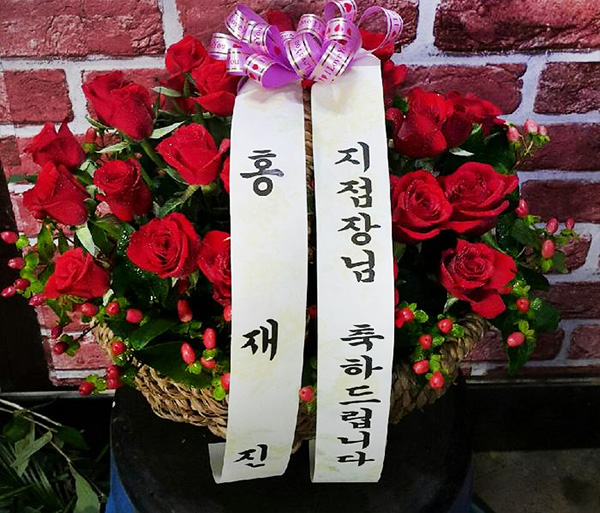 홍재진
지점장님 축하드립니다